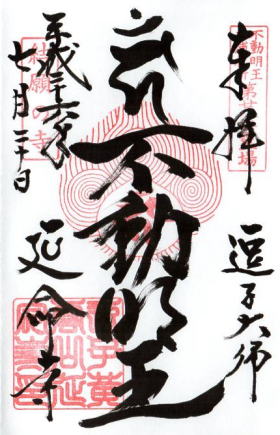 不動明王
奉拝
逗子大師
不動明王
平成二十六年
七月二十日
結願の寺
延命寺